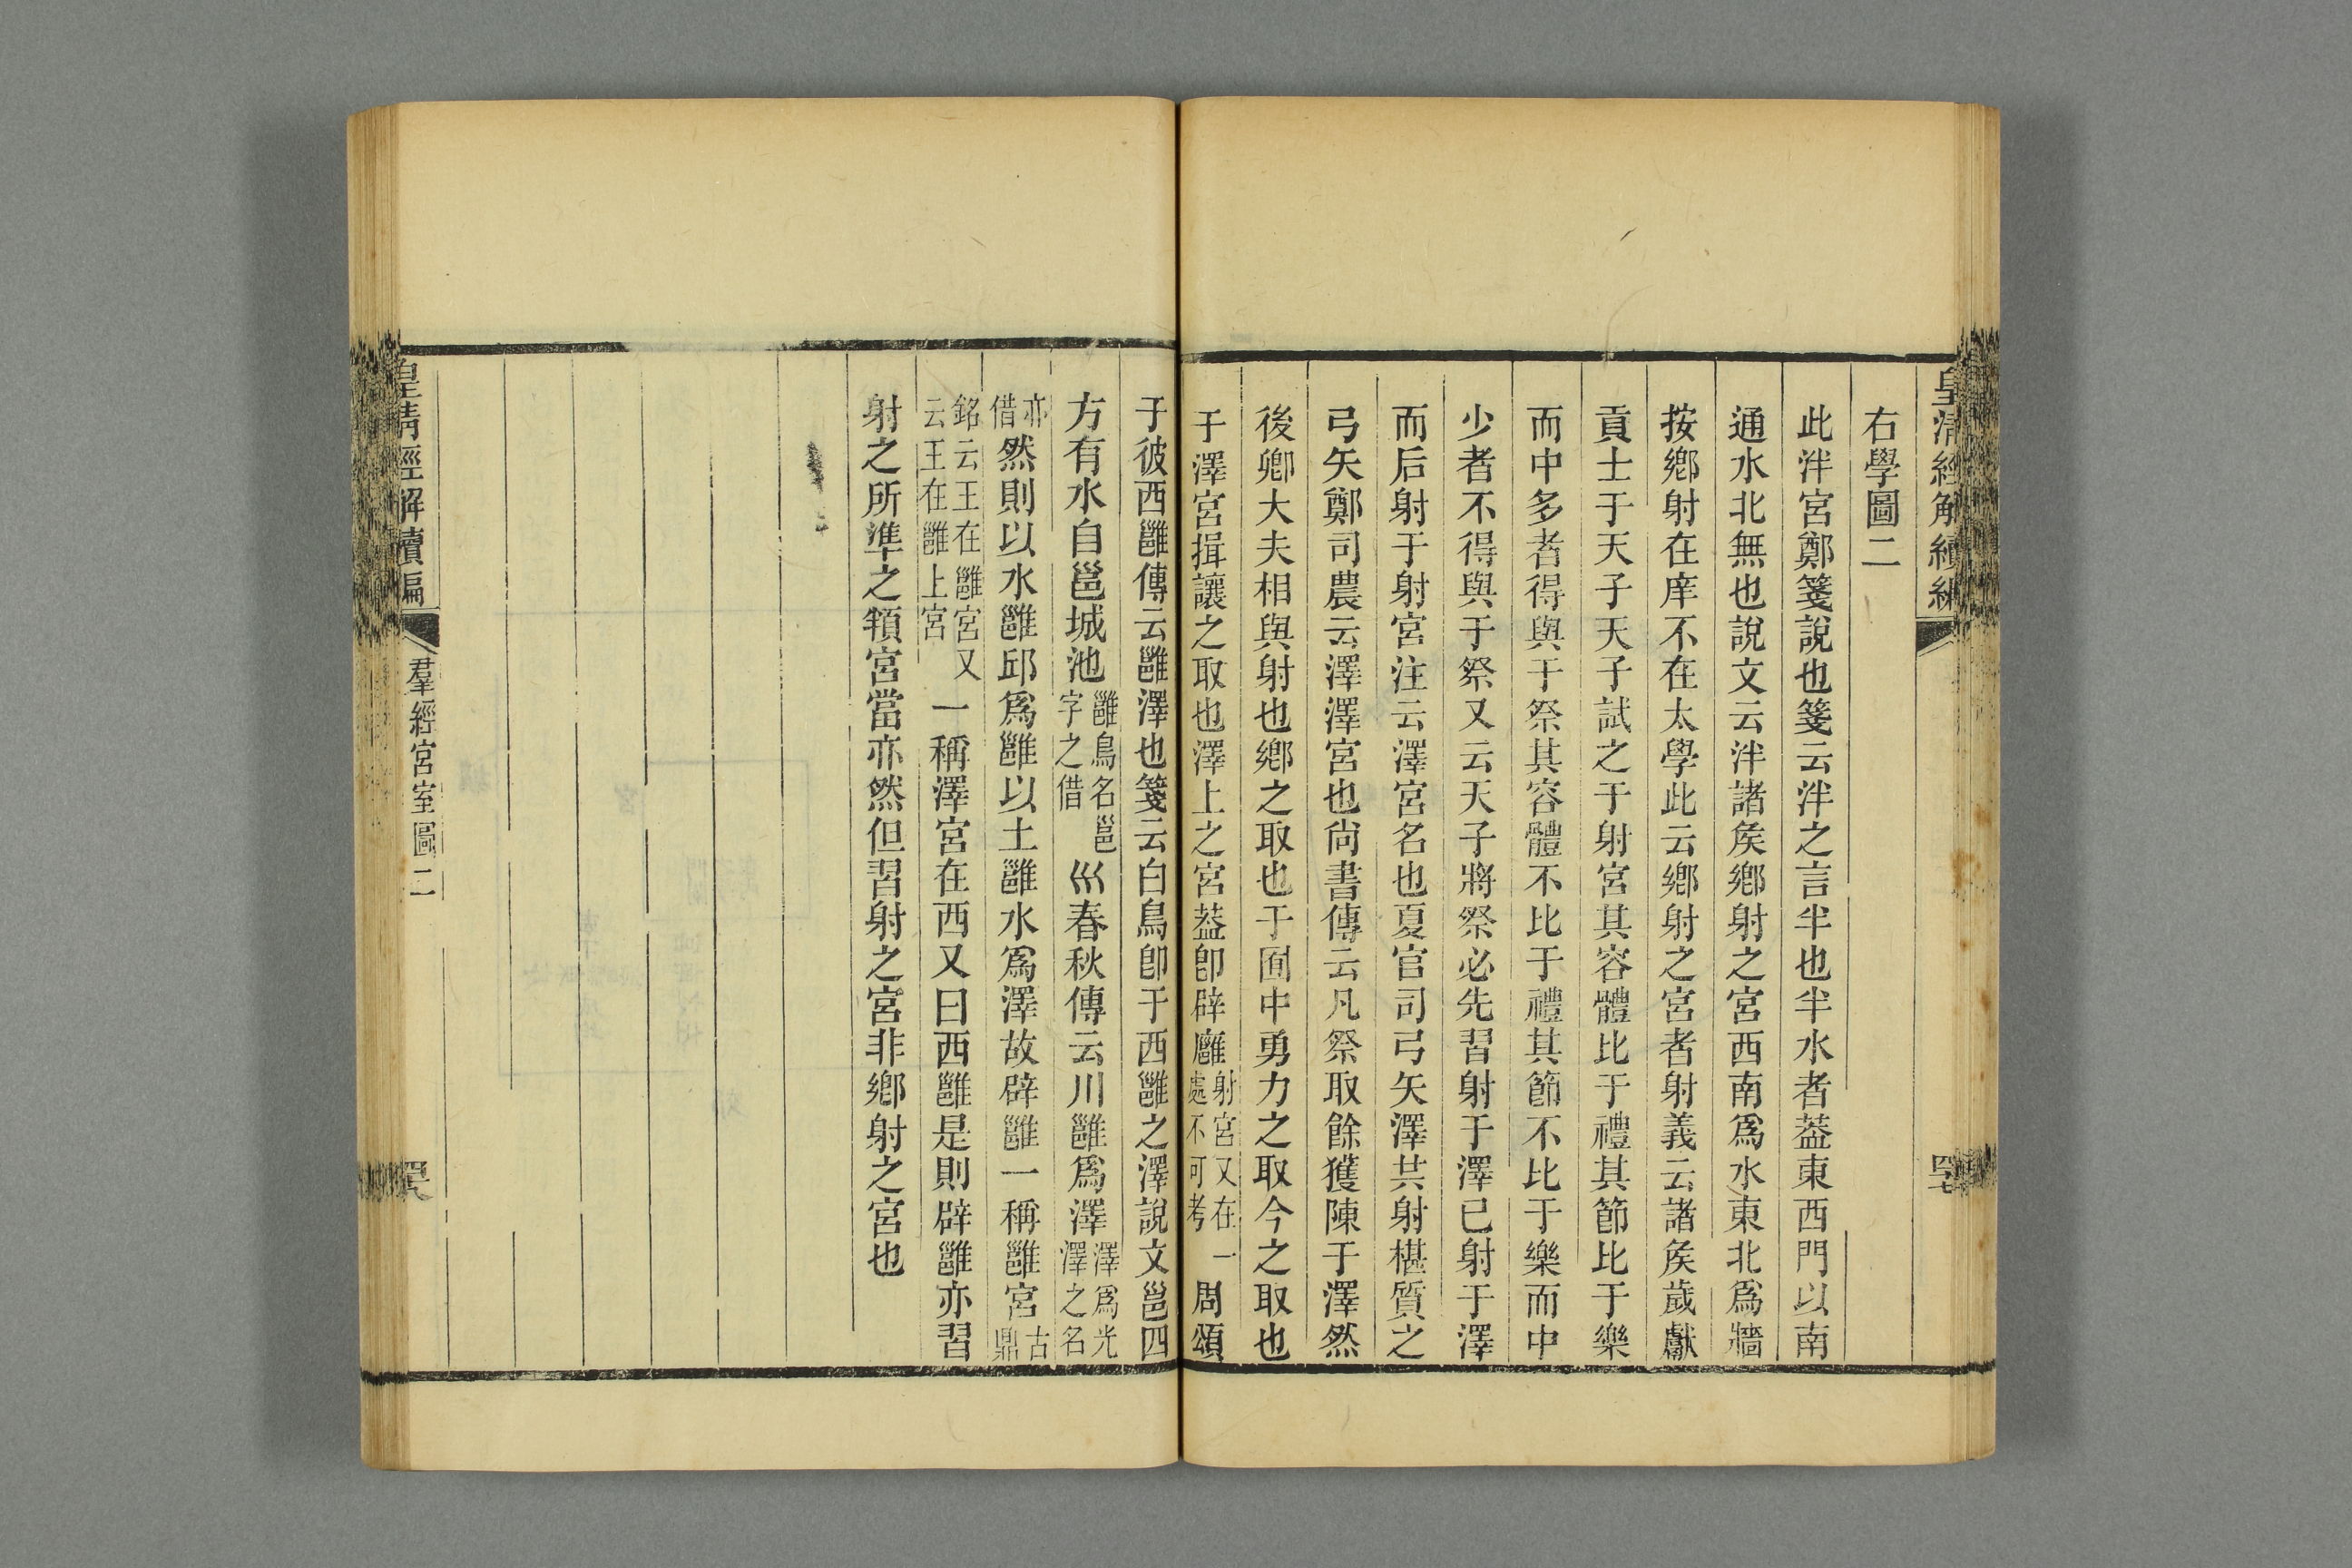 皇清經解續編
四七
右學圖二
此泮宮鄭箋說也箋云泮之言半也半水者葢東西門以南
通水北無也說文云泮諸矦鄉射之宮西南爲水東北爲牆
按鄉射在庠不在太學此云鄉射之宮者射義云諸矦歲獻
貢士于天子天子試之于射宮其容體比于禮其節比于樂
而中多者得與于祭其容體不比于禮其節不比于樂而中
少者不得與于祭又云天子將祭必先習射于澤已射于澤
而后射于射宮注云澤宮名也夏官司弓矢澤共射椹質之
弓矢鄭司農云澤澤宮也尙書傳云凡祭取餘獲陳于澤然
後卿大夫相與射也鄉之取也于囿中勇力之取今之取也
于澤宮揖讓之取也澤上之宮葢卽辟廱射宮又在一處不可考周頌
于彼西雝傳云雝澤也箋云白鳥卽于西雝之澤說文邕四
方有水自邕城池雝鳥名邕字之借巛春秋傳云川雝爲澤澤爲光澤之名
亦借然則以水雝邱爲雝以土雝水爲澤故辟雝一稱雝宮古鼎
銘云王在雝宮又云王在雝上宮一稱澤宮在西又曰西雝是則辟雝亦習
射之所準之頖宮當亦然但習射之宮非鄉射之宮也
皇清經解續編
羣經宮室圖二
四八